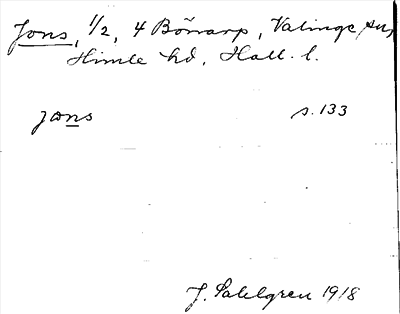 Jons, 1/2, 4 Bönarp, Valinge sn,
Himle hd, Hall. l.
jons s. 133
J. Sahlgren 1918